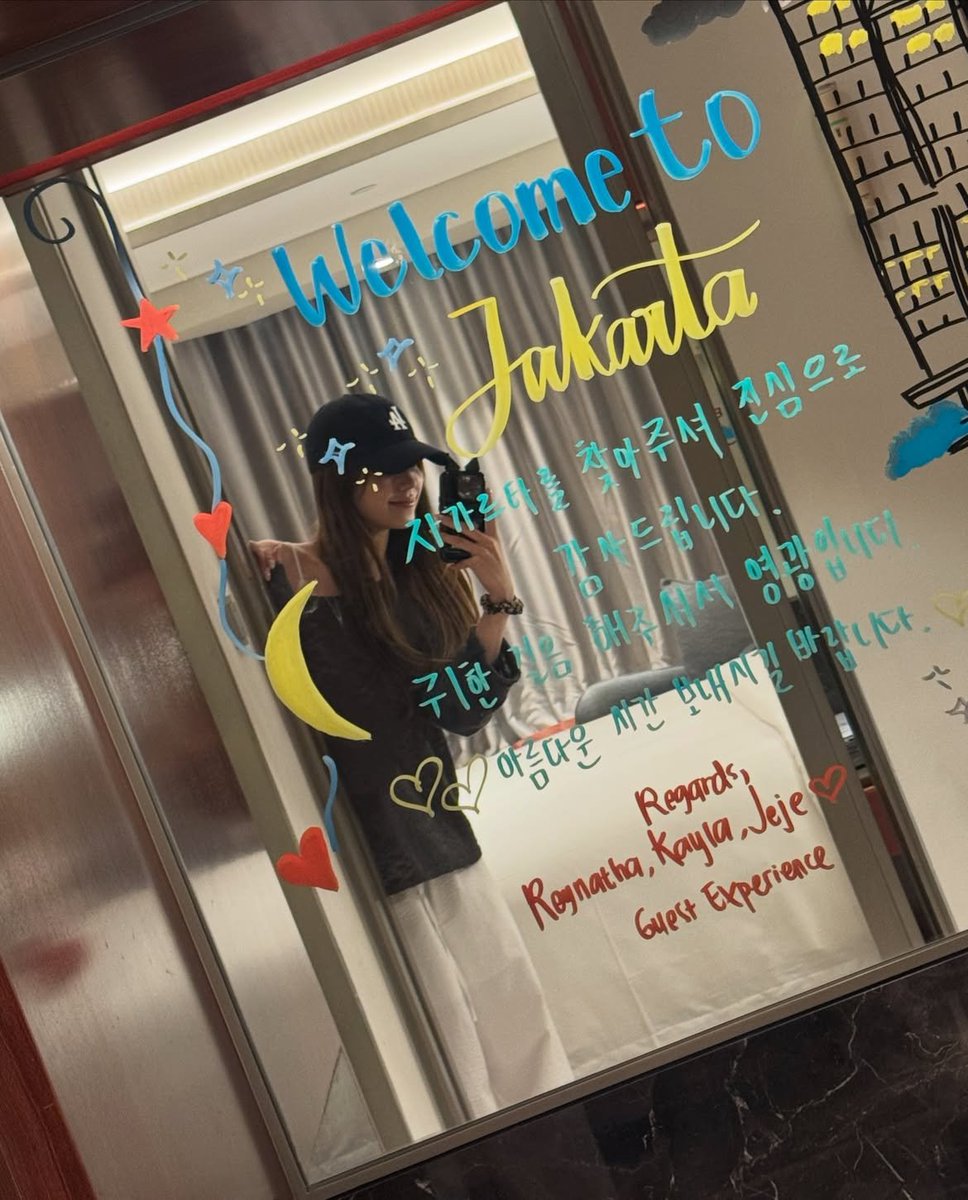 Welcome to
Jakarta
자카르타를 찾아주셔 진심으로
감사드립니다.
귀한 걸음 해주셔서 영광입니다
아름다운 시간 보내시길 바랍니다.
Regards,
Raynatha, Kayla, Jeje
Guest Experience
LA